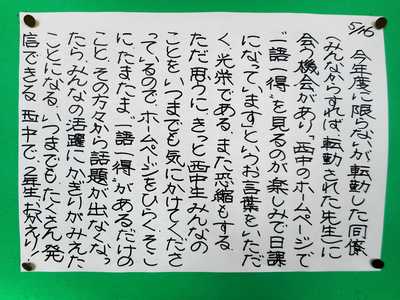 5/16
今年度に限らないが転勤した同僚
(みんなからすれば、転勤された先生)に
会う機会があり、「西中のホームページで
“一語一得”を見るのが楽しみで日課
になっています」というお言葉をいただ
く。光栄である。また恐縮もする。
ただ思うに、きっと西中生みんなの
ことを、いつまでも気にかけてくださ
っているので、ホームページをひらく。そこ
に、たまたま“一語一得”があるだけの
こと。その方々から話題が出なくなっ
たら、みんなの活躍にかぎりがみえた
ことになる。いつまでも、たくさん発
信できる西中で。2年生おかえり!